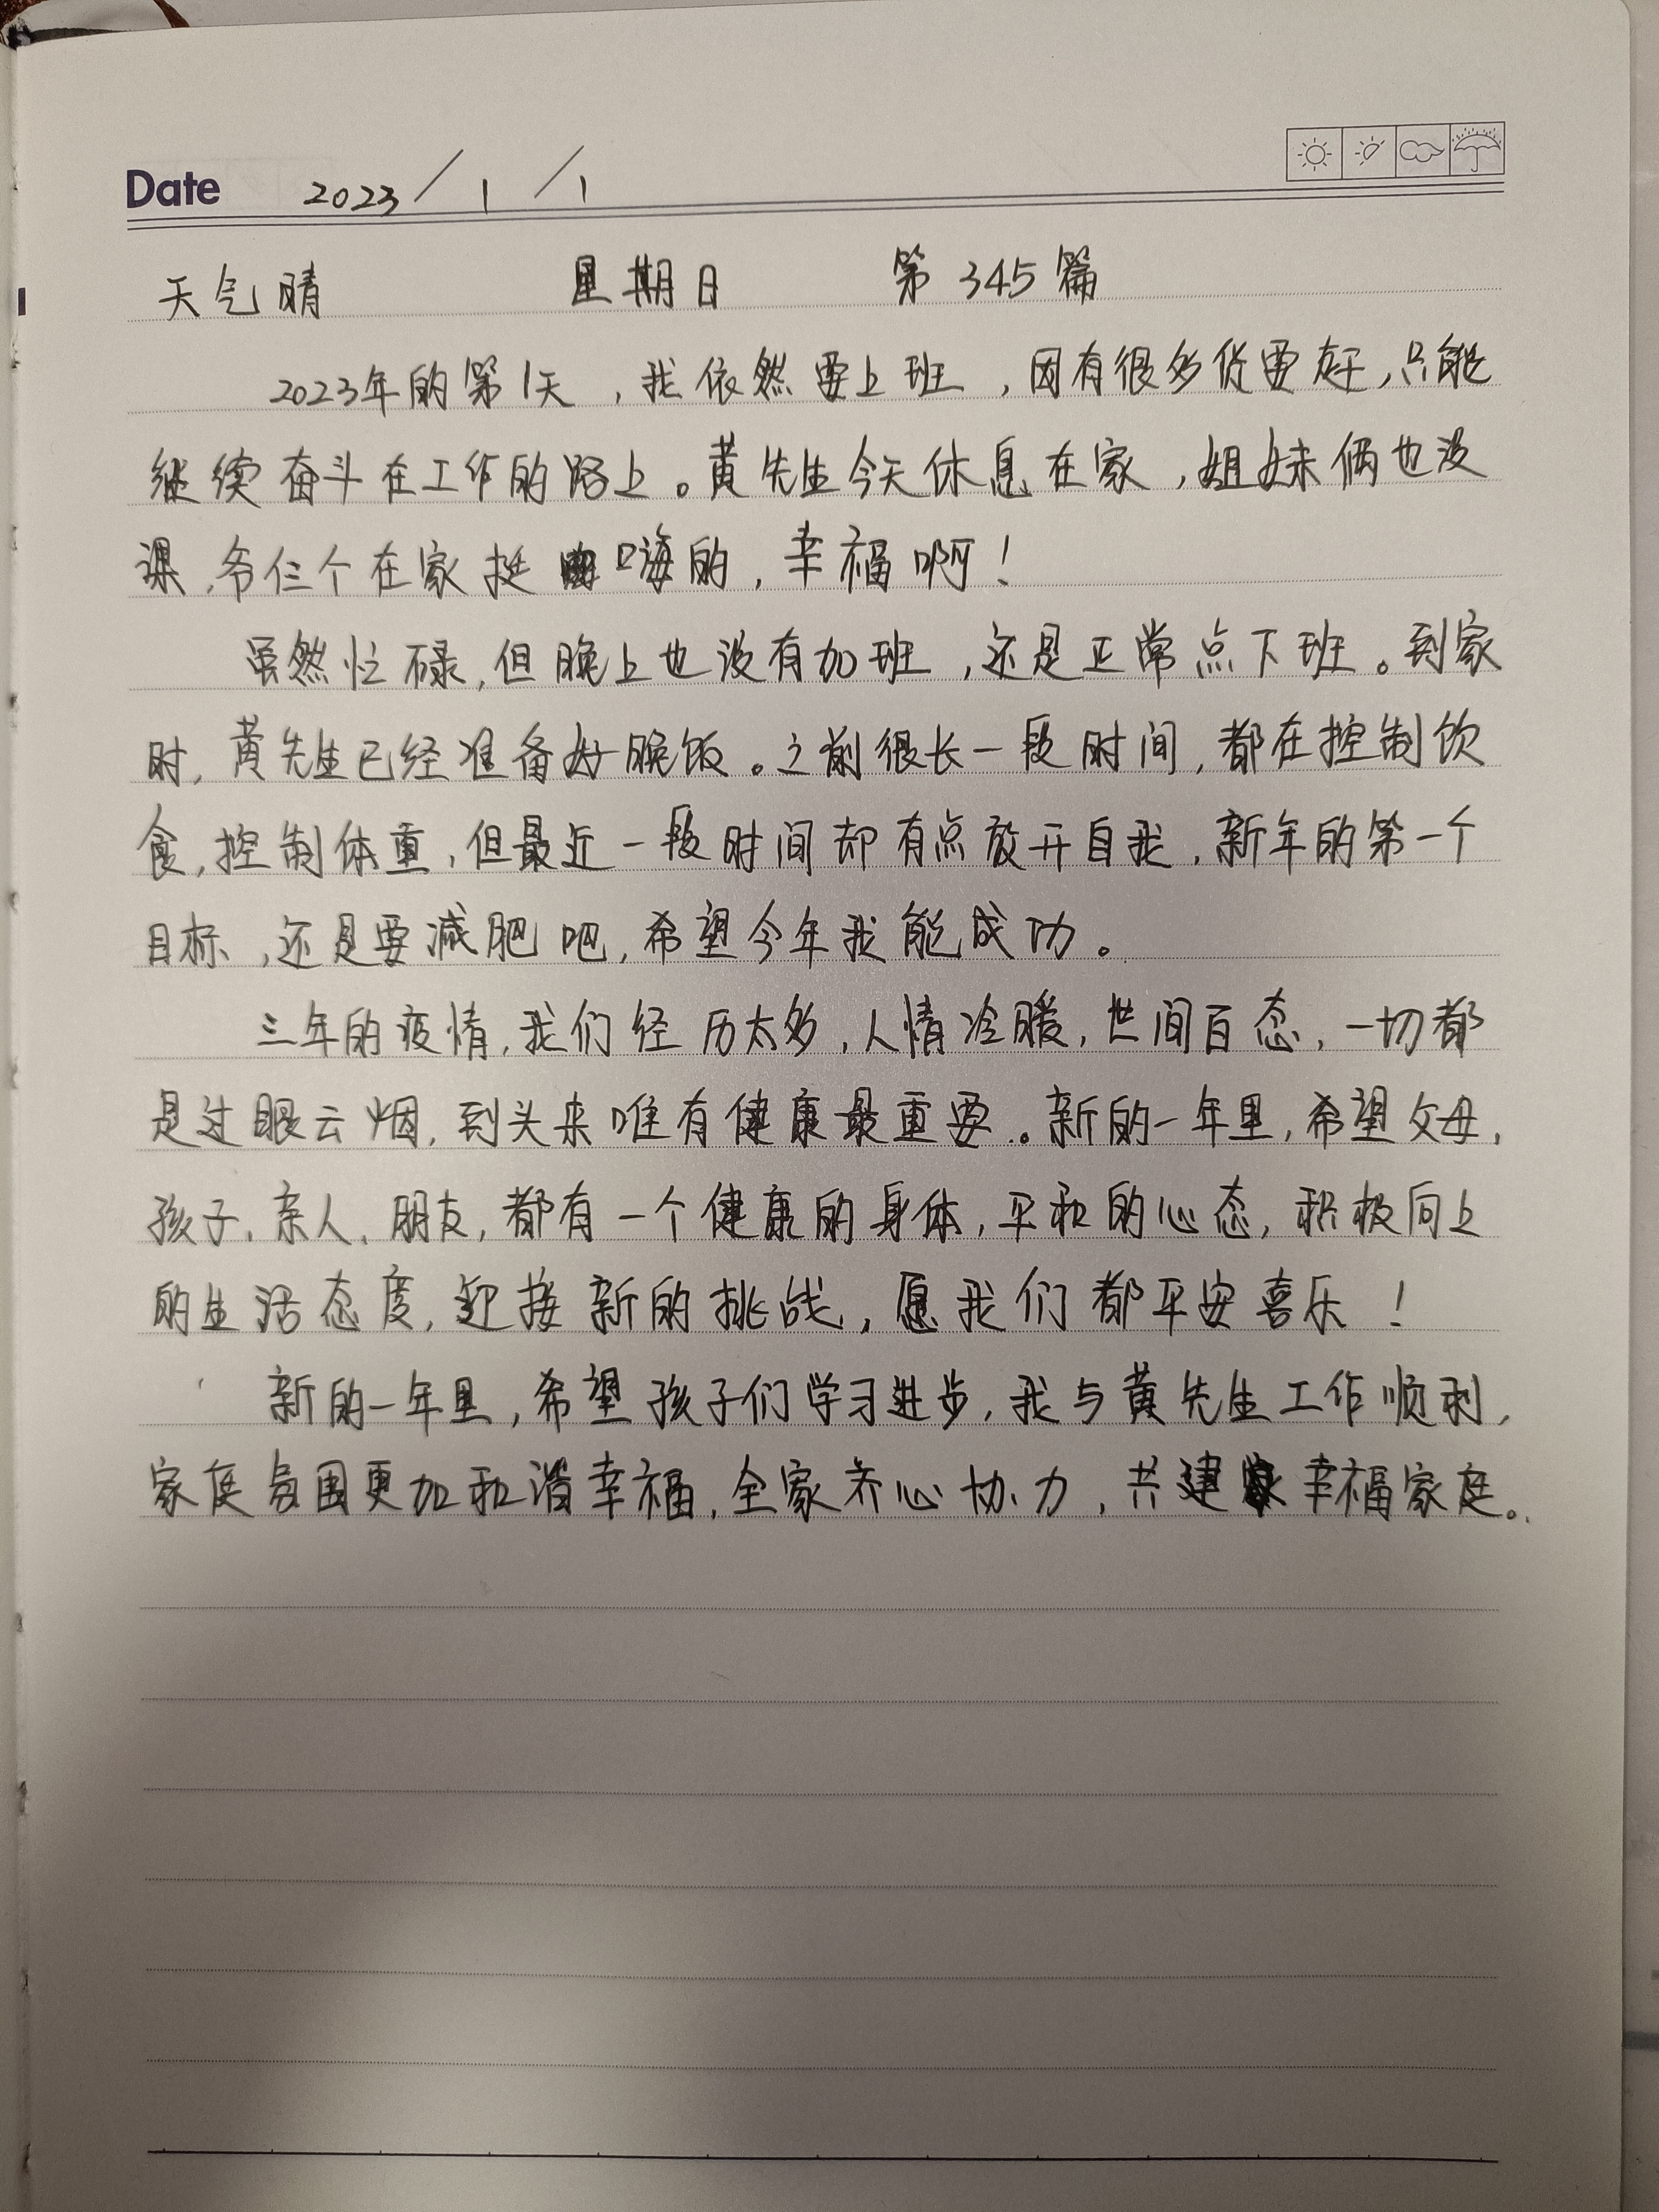 Date 2023/1/1
天气晴 星期日 第345篇
2023年的第1天，我依然要上班，因有很多货要存，只能
继续奋斗在工作的路上。黄先生今天休息在家，姐妹俩也没
课，爷仨个在家挺嗨的，幸福啊！
虽然忙碌，但晚上也没有加班，还是正常点下班。到家
时，黄先生已经准备好晚饭。之前很长一段时间，都在控制饮
食，控制体重，但最近一段时间却有点放开自我，新年的第一个
目标，还是要减肥吧，希望今年我能成功。
三年的疫情，我们经历太多，人情冷暖，世间百态，一切都
是过眼云烟，到头来唯有健康最重要。新的一年里，希望父母，
孩子、亲人、朋友，都有一个健康的身体，平和的心态，积极向上
的生活态度，迎接新的挑战，愿我们都平安喜乐！
新的一年里，希望孩子们学习进步，我与黄先生工作顺利，
家庭氛围更加和谐幸福，全家齐心协力，共建幸福家庭。